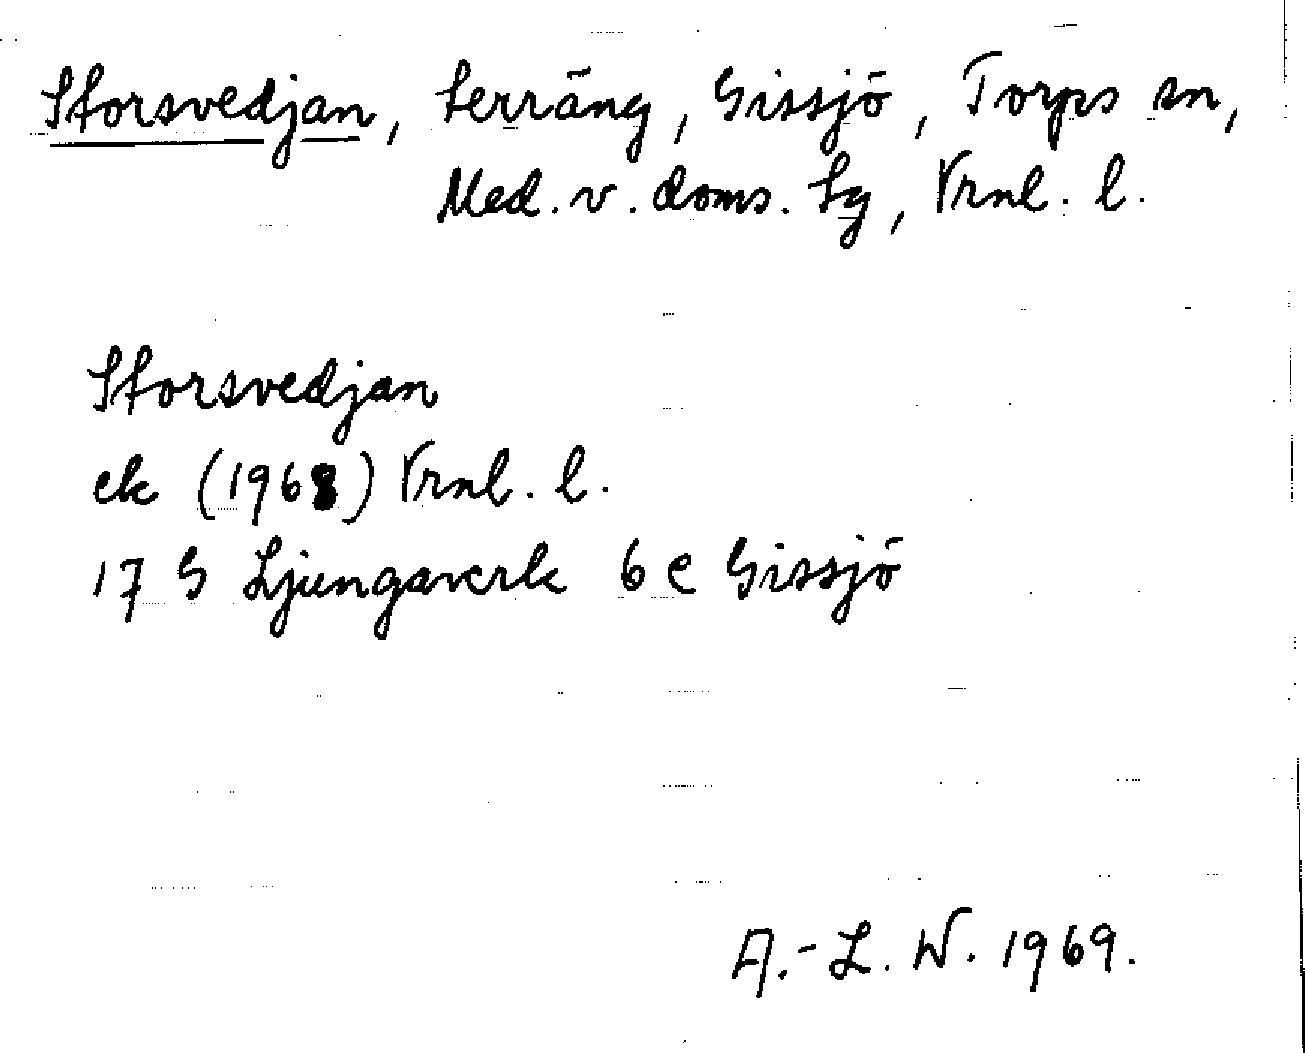 Storsvedjan, terräng, Gissjö, Torps sn,
Med. v. doms. tg, Vrnl. l.
Storsvedjan
ek (1968) Vrnl. l.
17 G Ljungaverk 6 e Gissjö
A.-L. W. 1969.